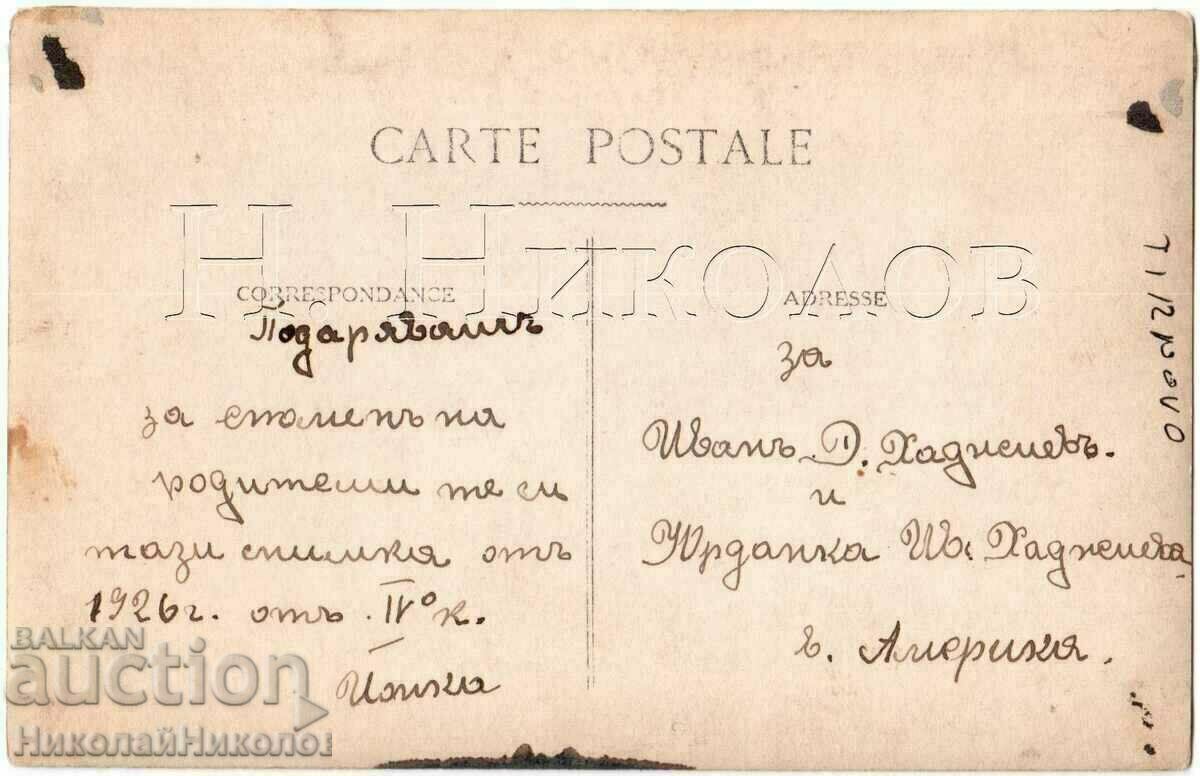 CARTE POSTALE
Н. Николов
CORRESPONDANCE
Подарявамъ
за споменъ на
родители те си
тази снимка отъ
1926 г. отъ IV° к.
Йонка
ADRESSE
за
Иванъ Д. Хаджиевъ.
и
Юрданка Ив. Хаджиева
в. Америка.
BALKAN
auction
НиколайНиколов